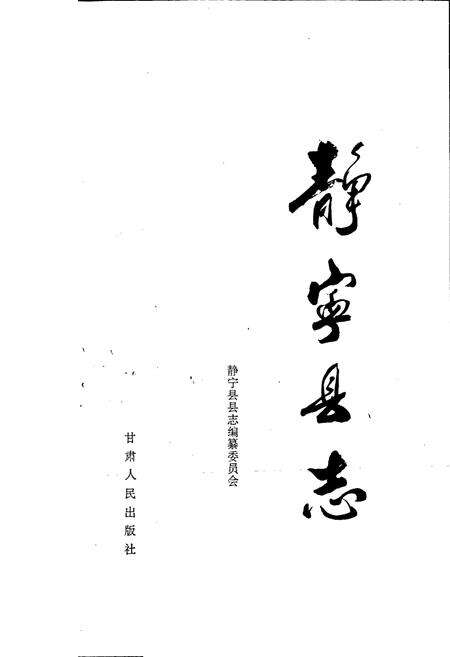 靜寧县志
静宁县县志编纂委员会
甘肃人民出版社